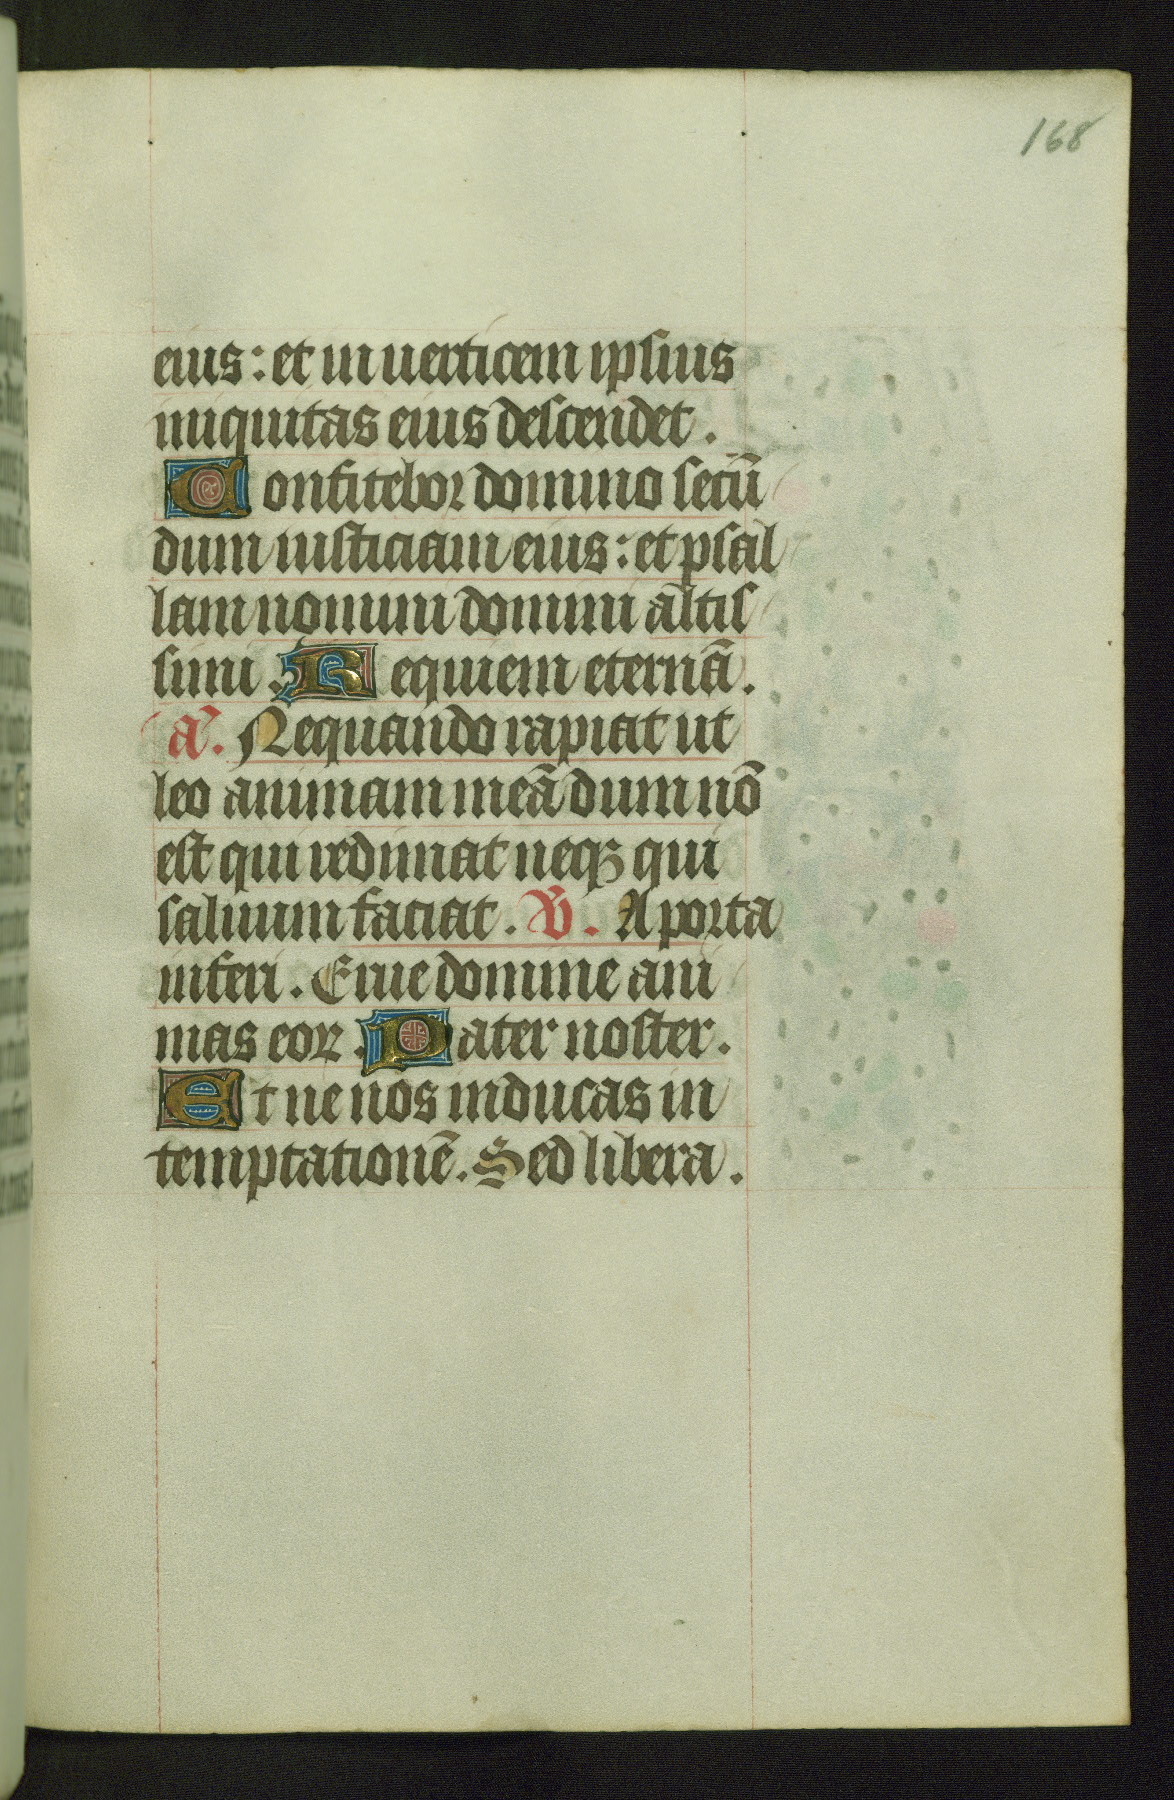 168
eius : et in uerticem ipsius
iniquitas eius descendet .
Confitebor domino secū
dum iusticiam eius : et psal
lam nomini domini altis
simi . Requiem eternā .
a̾. Nequando rapiat ut
leo animam meā dum nō
est qui redimat neqꝫ qui
saluum faciat . ℣. A porta
inferi . Erue domine ani
mas eoꝝ . Pater noster .
Et ne nos inducas in
temptationē . Sed libera .